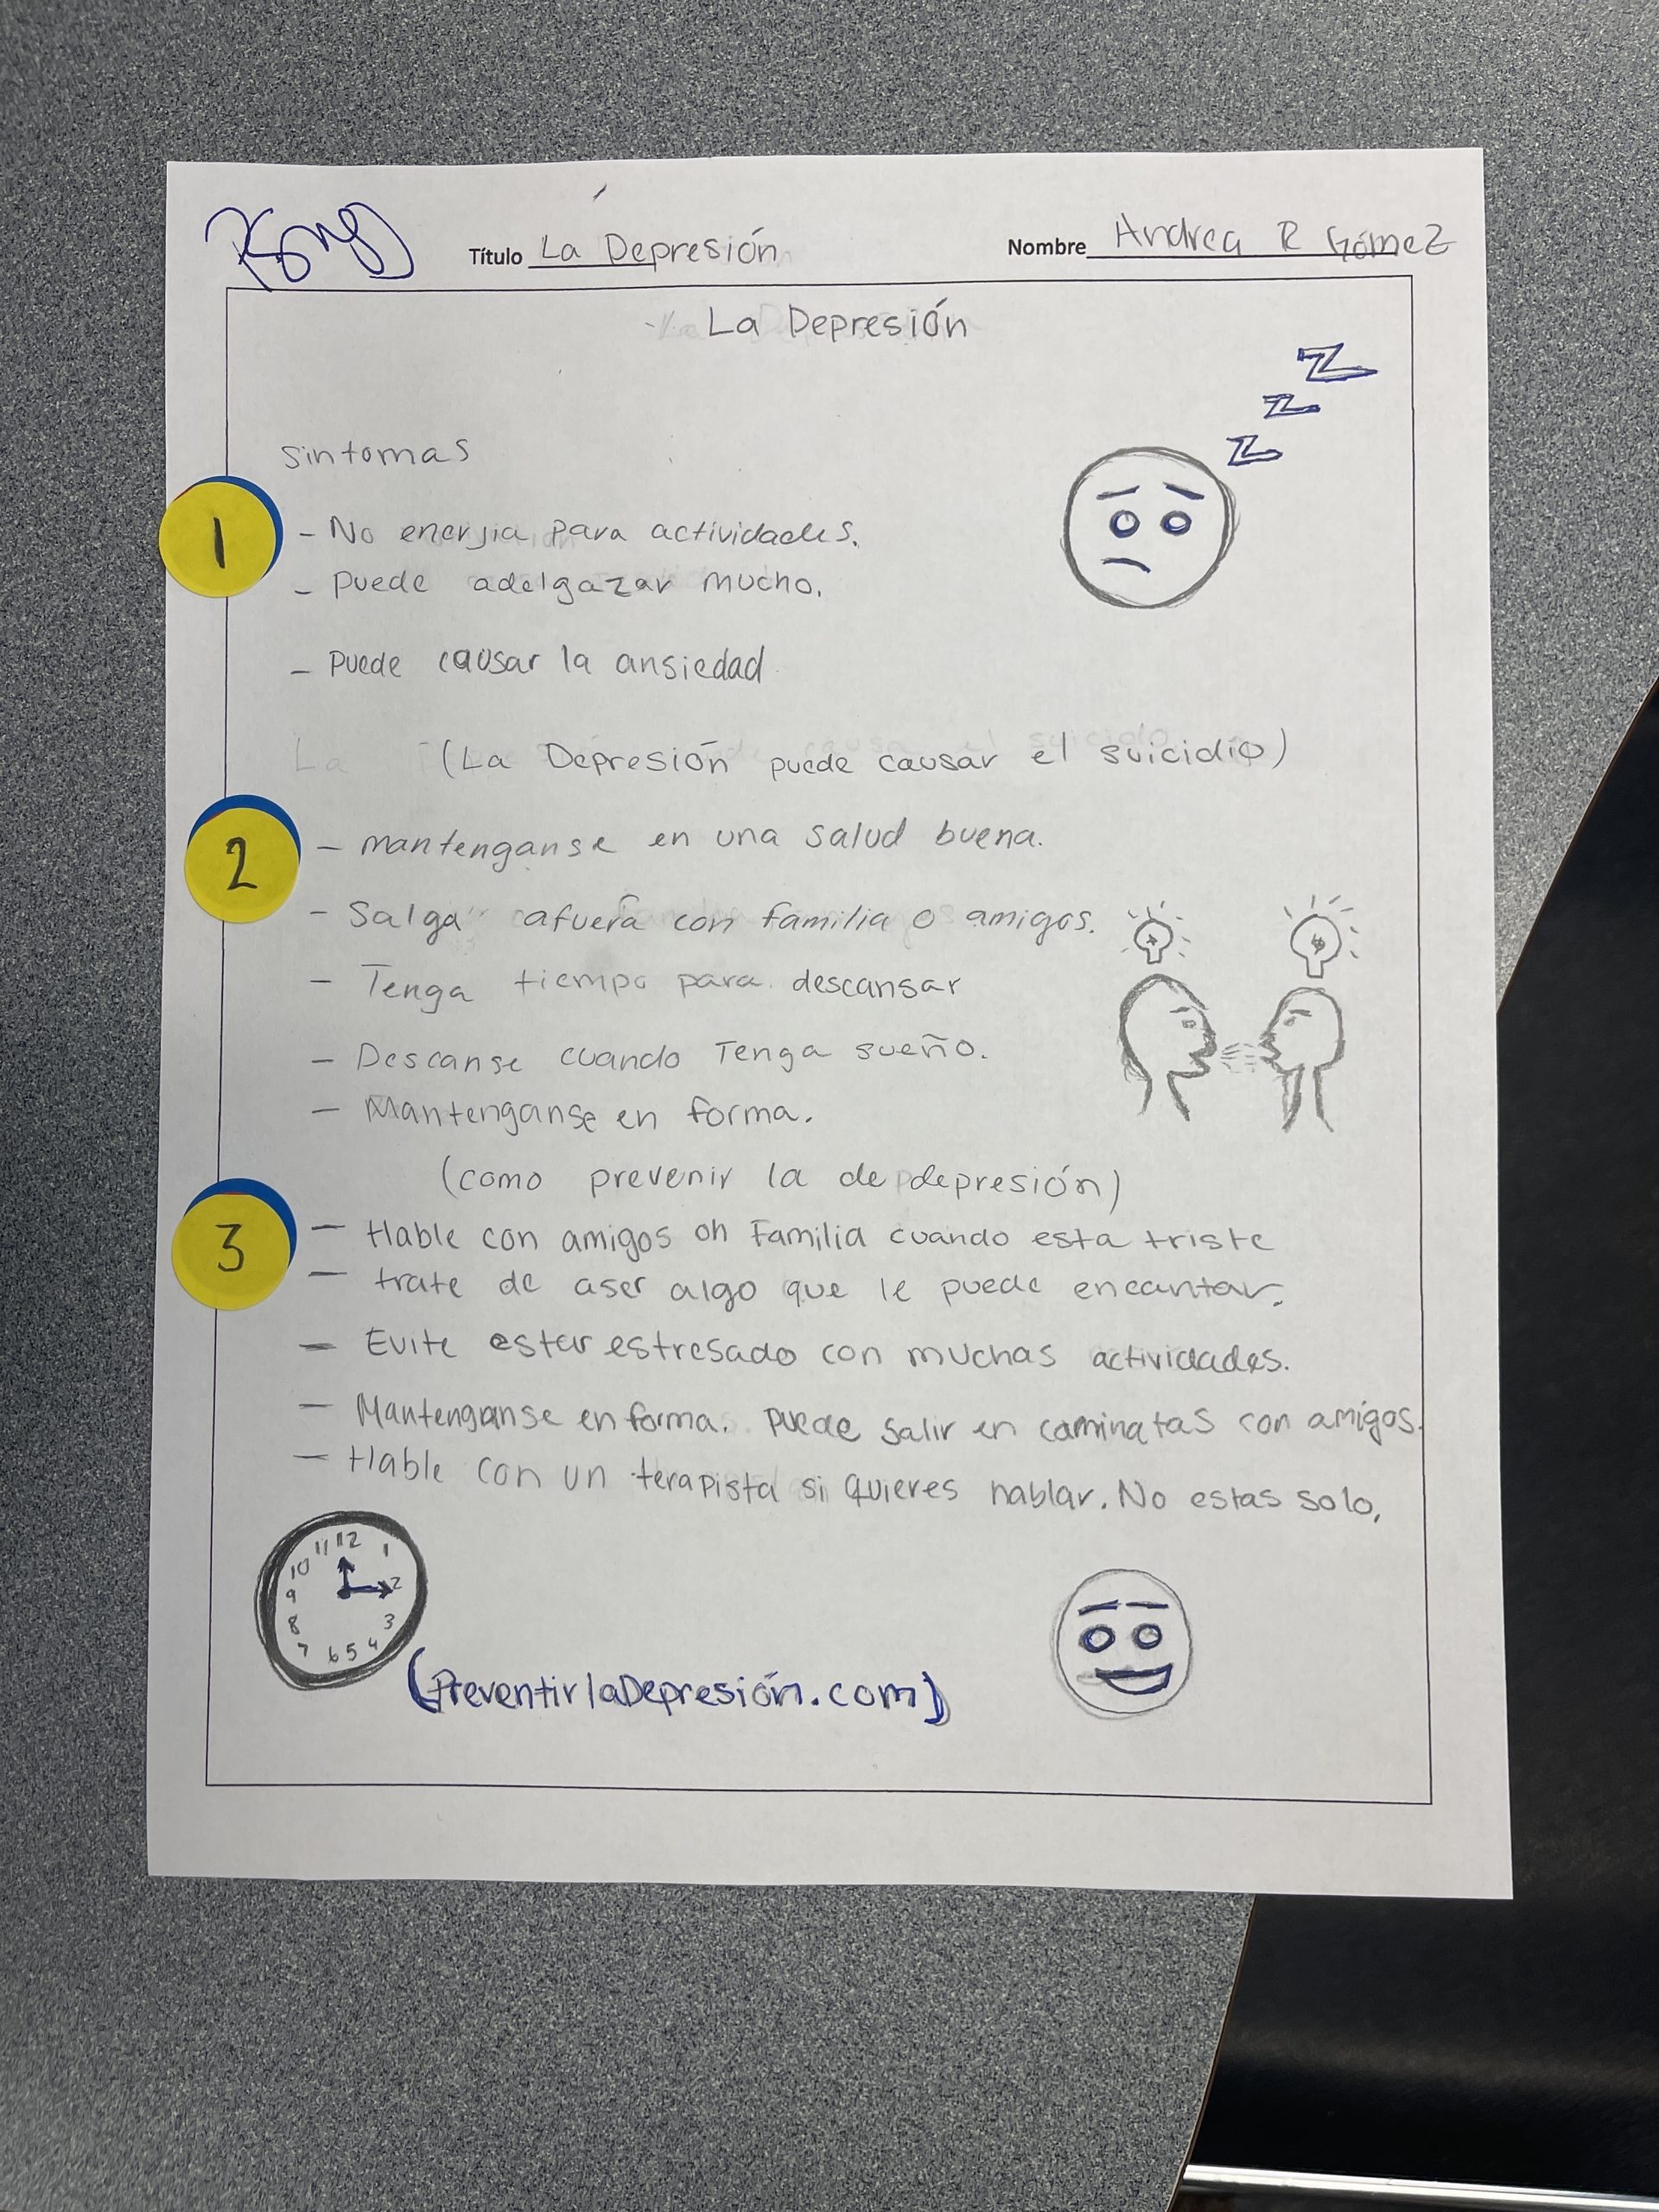 Título La Depresión Nombre Andrea R Gómez
La Depresión
z
z
z
sintomas
1
- No enerjia para actividades.
- Puede adelgazar mucho.
- Puede causar la ansiedad
(La Depresión puede causar el suicidio)
2
- mantenganse en una salud buena.
- Salga afuera con familia o amigos.
- Tenga tiempo para descansar
- Descanse cuando Tenga sueño.
- Mantenganse en forma.
(como prevenir la de depresión)
3
- Hable con amigos oh Familia cuando esta triste
- trate de aser algo que le puede encantar.
- Evite estar estresado con muchas actividades.
- Mantenganse en forma. Puede salir en caminatas con amigos.
- Hable con un terapista si quieres hablar. No estas solo,
12 1 2 3 4 5 6 7 8 9 10 11
(PreventirlaDepresión.com)